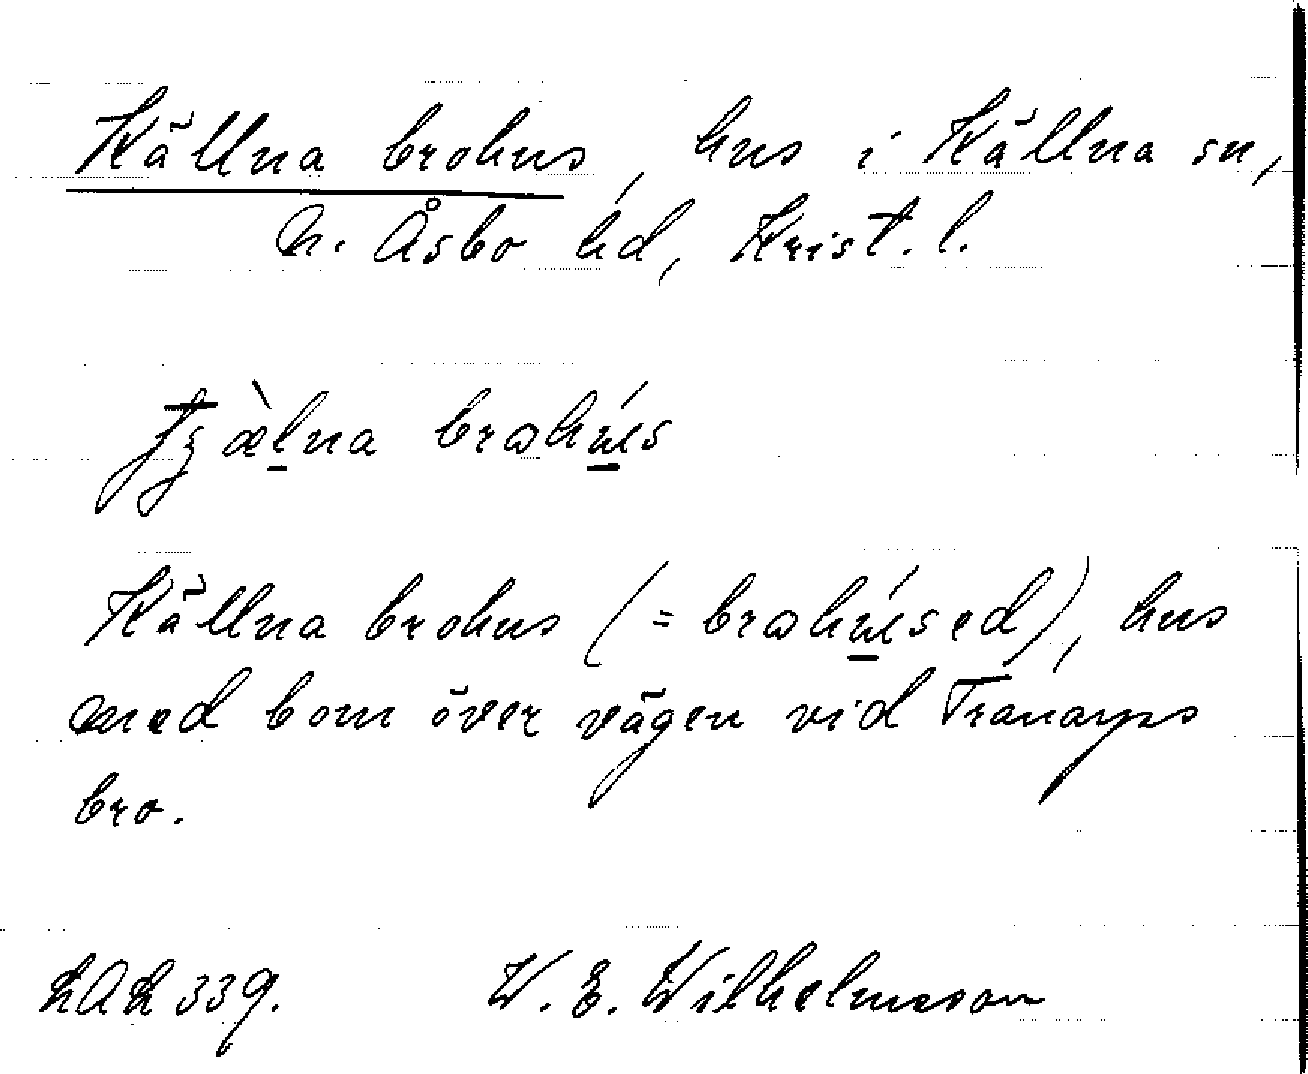 Källna brohus, hus i Källna sn,
N. Åsbo hd, Krist. l.
brohus
Källna brohus (= brohused), hus
med bom över vägen vid Tranarps
bro.
LAL 339. W. E. Wilhelmsson